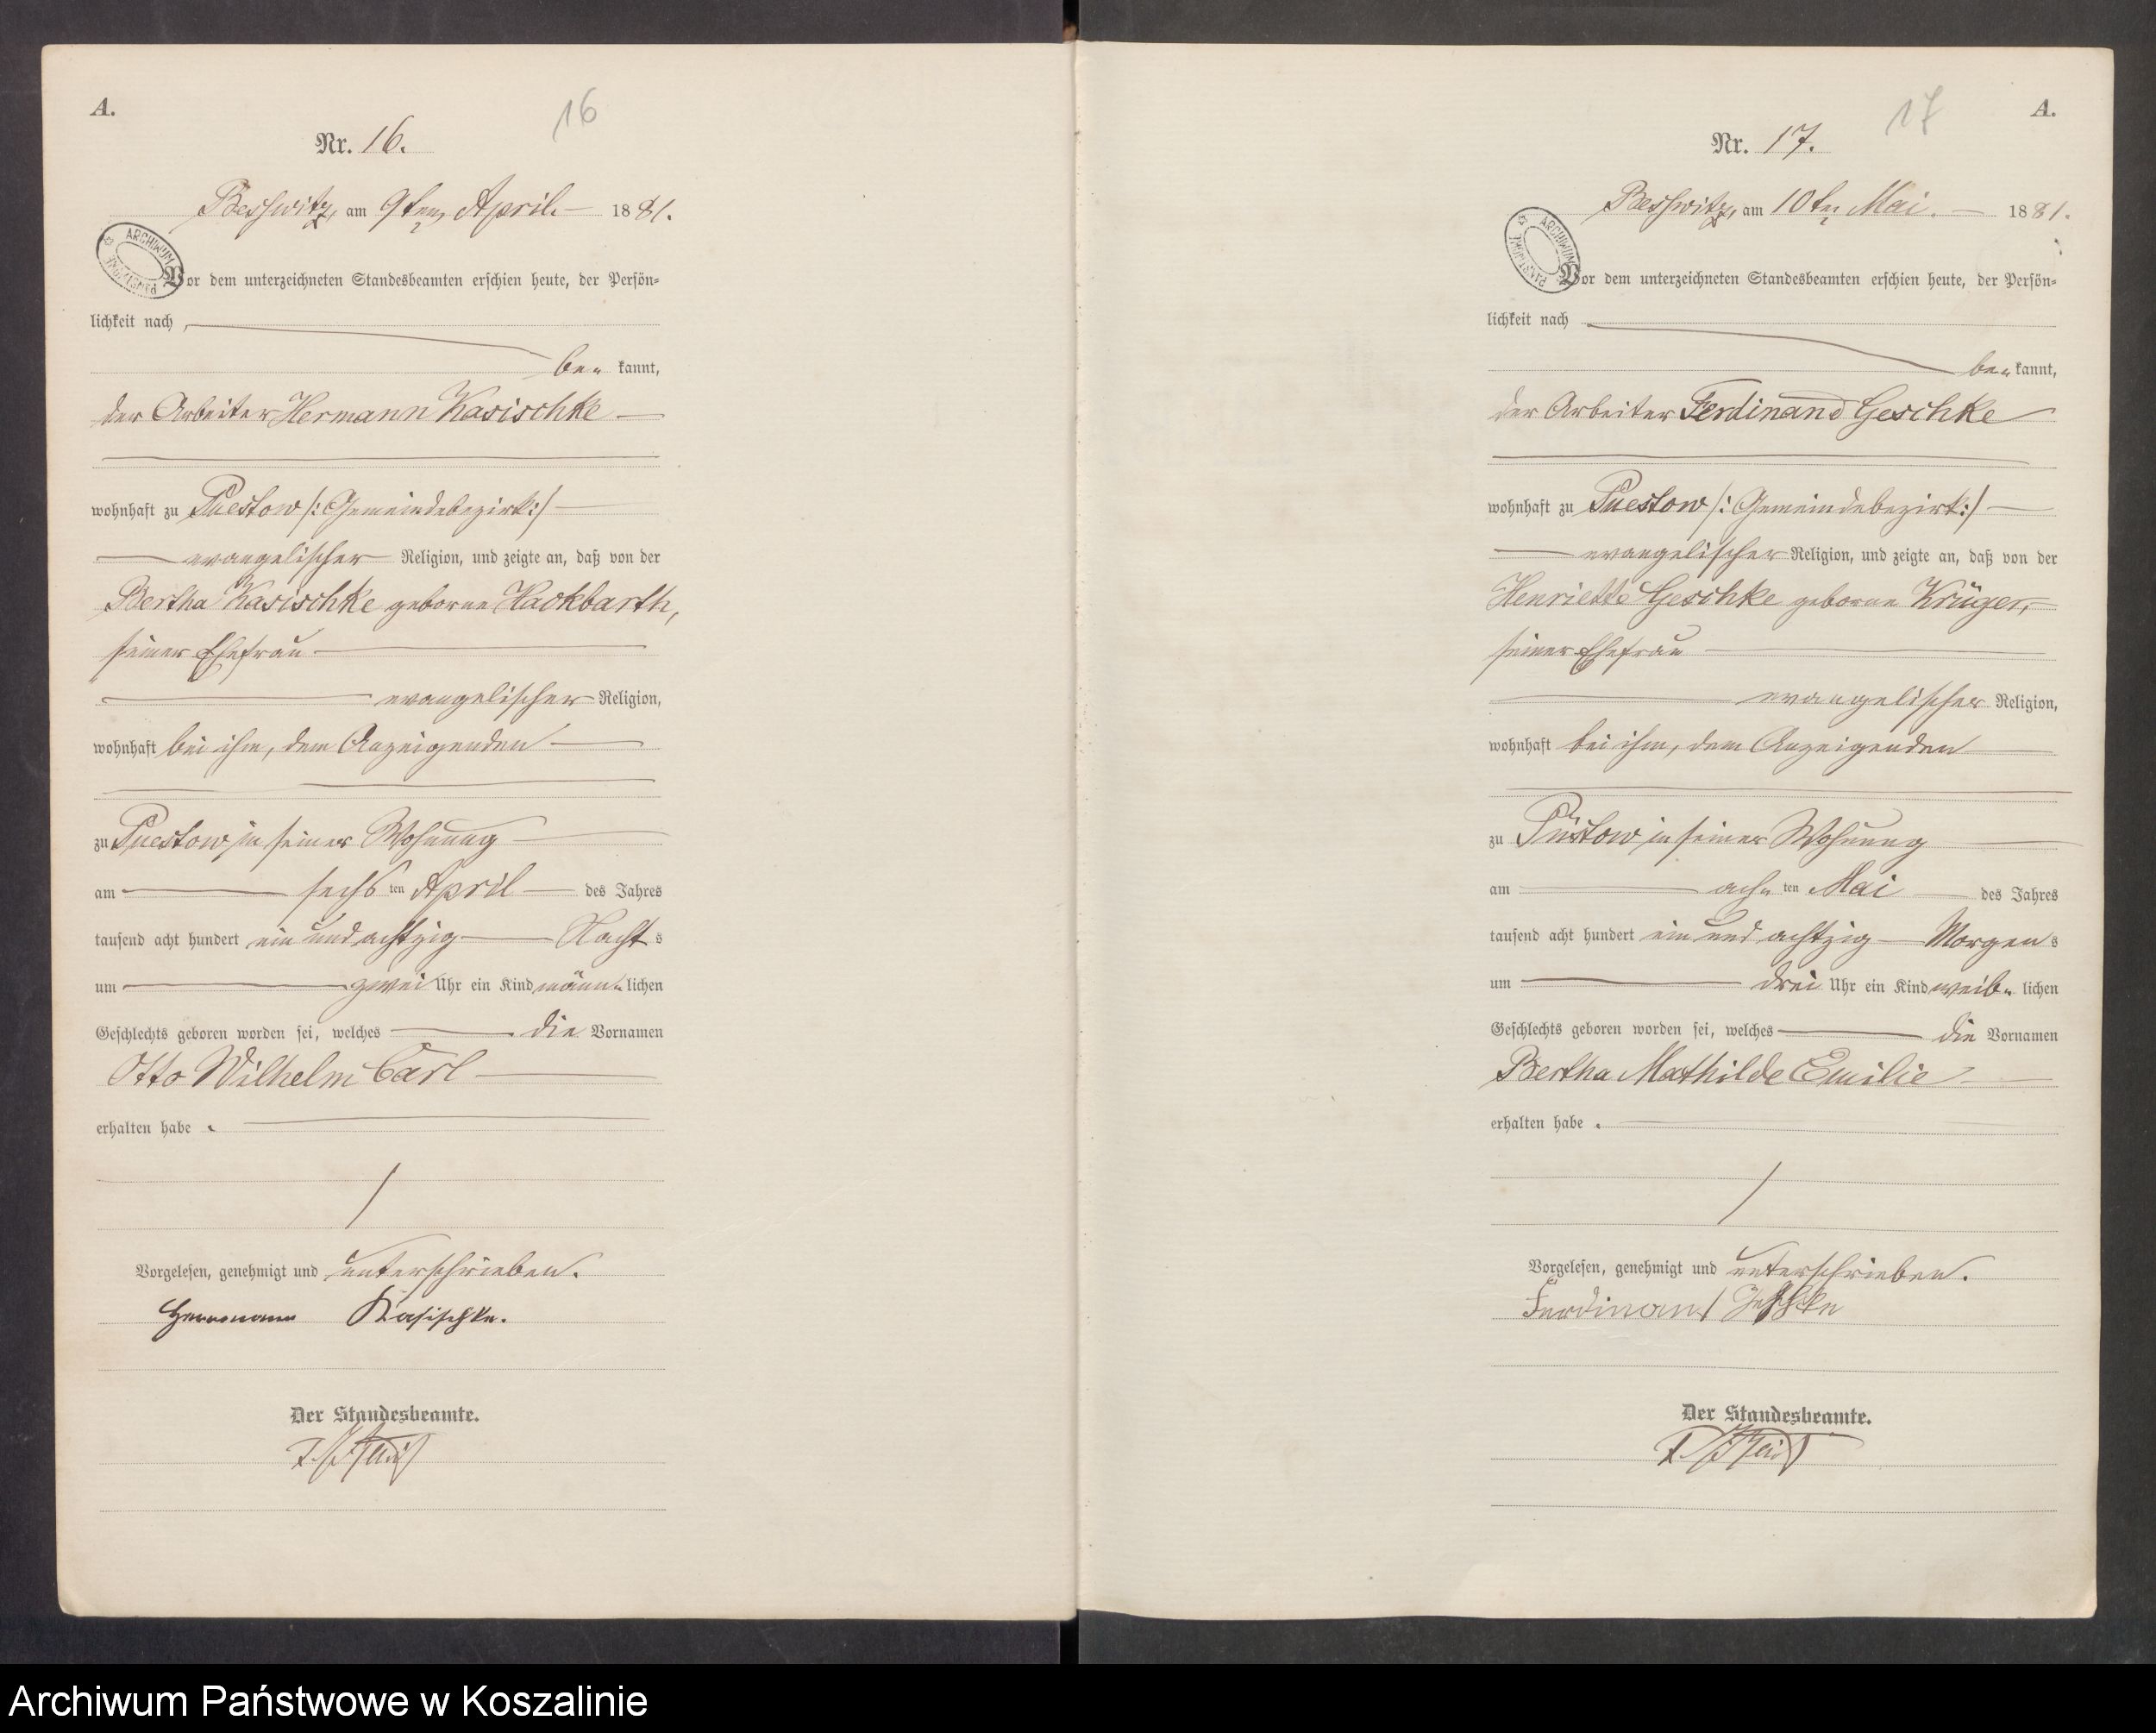 A.
16
Nr. 16.
Besswitz, am 9ten April. 1881.
ARCHIWUM PAŃSTWOWE
Vor dem unterzeichneten Standesbeamten erschien heute, der Persön-
lichkeit nach
be- kannt,
der Arbeiter Hermann Kasischke
wohnhaft zu Puestow /: Gemeindebezirk :/
evangelischer Religion, und zeigte an, daß von der
Bertha Kasischke geborne Hackbarth,
seiner Ehefrau
evangelischer Religion,
wohnhaft bei ihm, dem Anzeigenden
zu Puestow in seiner Wohnung
am sechsten April des Jahres
tausend acht hundert ein und achtzig Nachts
um zwei Uhr ein Kind männ-lichen
Geschlechts geboren worden sei, welches die Vornamen
Otto Wilhelm Carl
erhalten habe.
Vorgelesen, genehmigt und unterschrieben.
Herrmann Kasischke.
Der Standesbeamte.
17
A.
Nr. 17.
Besswitz, am 10ten Mai. 1881.
ARCHIWUM PAŃSTWOWE
Vor dem unterzeichneten Standesbeamten erschien heute, der Persön-
lichkeit nach
be- kannt,
der Arbeiter Ferdinand Geschke
wohnhaft zu Puestow /: Gemeindebezirk :/
evangelischer Religion, und zeigte an, daß von der
Henriette Geschke geborne Krüger,
seiner Ehefrau
evangelischer Religion,
wohnhaft bei ihm, dem Anzeigenden
zu Püstow in seiner Wohnung
am ach- ten Mai des Jahres
tausend acht hundert ein und achtzig Morgens
um drei Uhr ein Kind weib- lichen
Geschlechts geboren worden sei, welches die Vornamen
Bertha Mathilde Emilie
erhalten habe.
Vorgelesen, genehmigt und unterschrieben.
Ferdinand Jeschke
Der Standesbeamte.
Archiwum Państwowe w Koszalinie